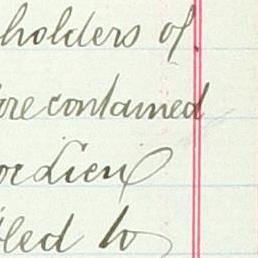 holders of
ore contained
or Lien
led to